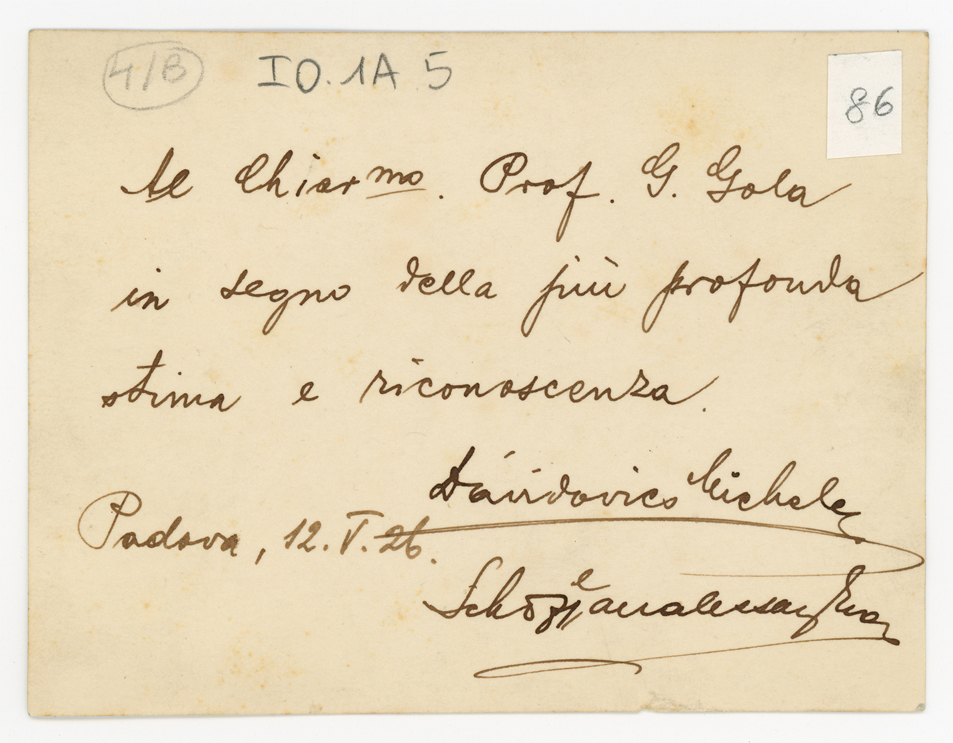 4/B IO.1A 5
86
Al Chiarmo. Prof. G. Gola
in segno della più profonda
stima e riconoscenza.
Dávidovics Michele
Padova, 12.V.26.